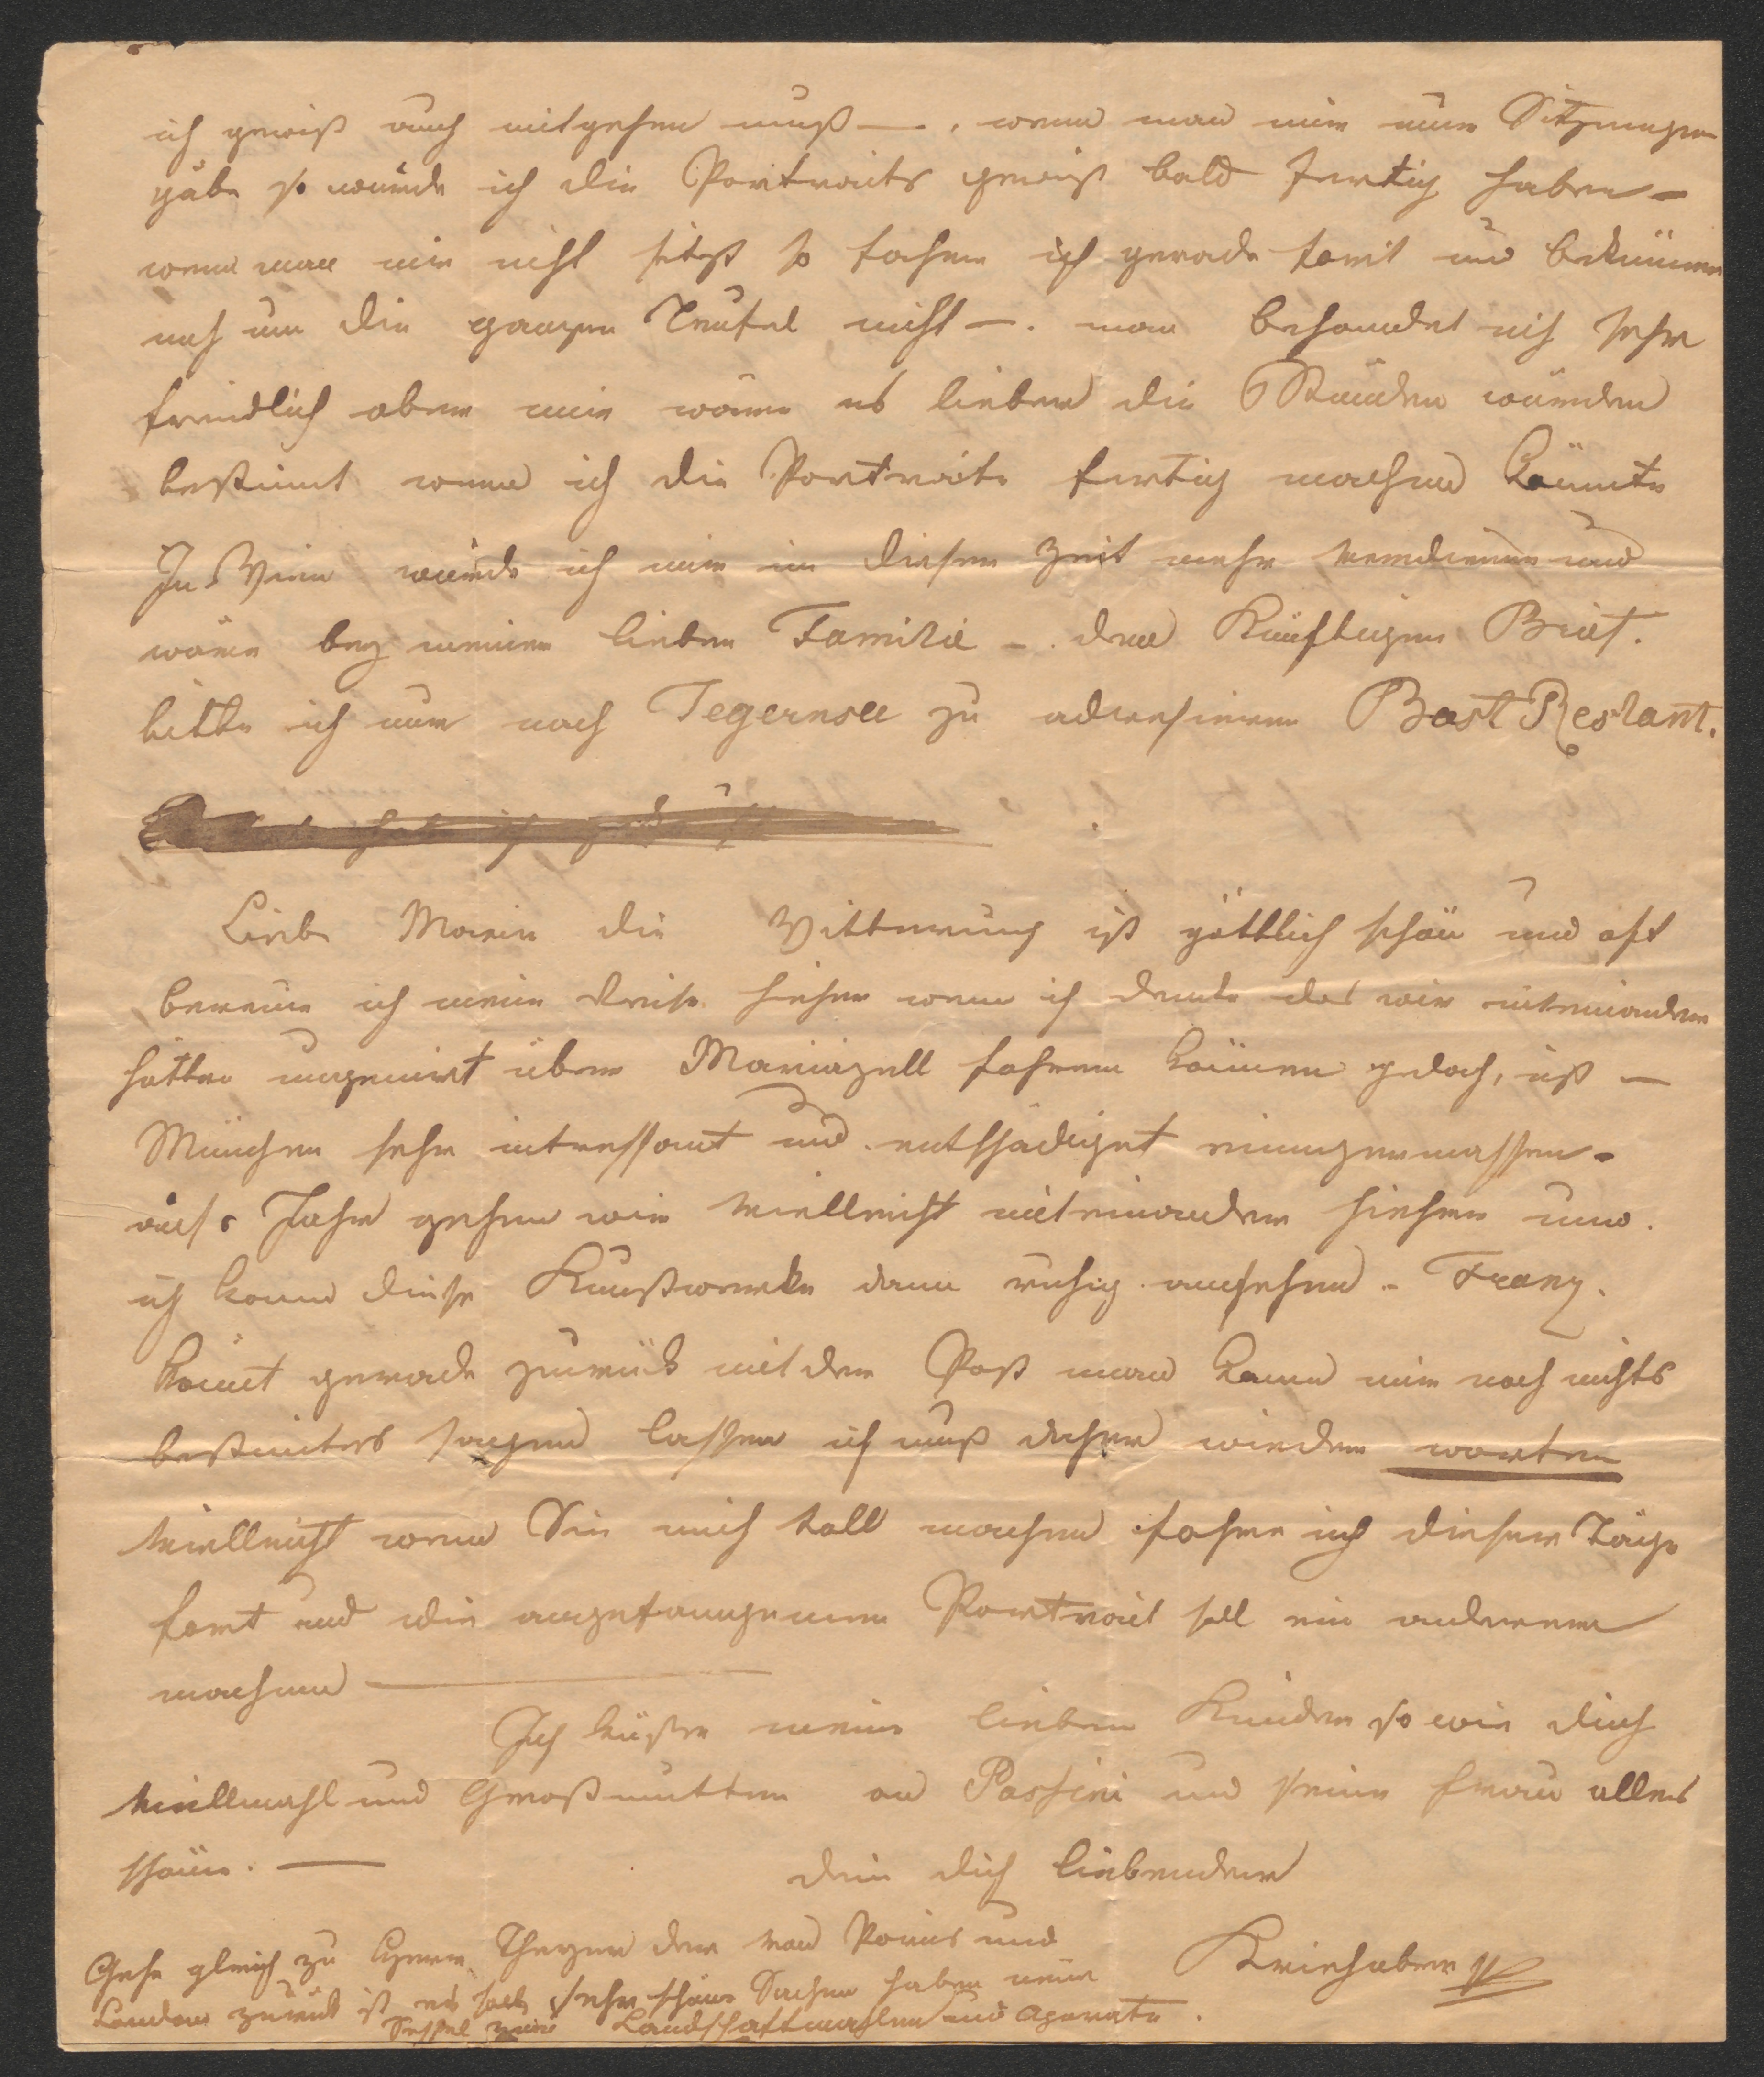 ich gewiß auch mitgehen muß —. wenn man mir nur Sitzungen
gäbe so würde ich die Portraits gewiß bald fertig haben –
wenn man mir nicht sitzt so fahre ich gerade fort und bekümmere
mich um die ganzen Teufel nicht —. man behandelt mich sehr
freundlich aber mir wäre es lieber die Stunden würden
bestimt wenn ich die Portraite fertig machen könnte
In Wien würde ich mir in dieser Zeit mehr verdienen und
wäre bey meiner lieben Familie –. den künftigen Brief.
bitte ich nur nach Tegernsee zu adressieren Post Restant.
Liebe Marie die Witterung ist göttlich schön und oft
bereue ich meine Reise hieher wenn ich denke das wir miteinander
hätten ungenirt über Mariazell fahren können jedoch, ist —
München sehr intressant und entschädiget einigermassen –
aufs Jahr gehen wir vielleicht miteinander hieher und.
ich kann diese Kunstwerke dann ruhig ansehen – Franz.
kömt gerade zurück mit der Post man kann mir noch nichts
bestimtes sagen lassen ich muß daher wieder warten
vielleicht wenn Sie mich toll machen fahre ich dieser Täge
fort und die angefangenen Portrait soll ein anderer
machen —
Ich küsse meine lieben Kinder so wie dich
viellmahl und Großmutter an Passini und seine Frau alles
schöne. —
dein dich liebender
Kriehuber
Gehe gleich zu Herrn Theyer der von Paris und
London zurück ist er soll sehr schöne Sachen haben neue
Sessel zum Landschaftmahlen und Aparate.